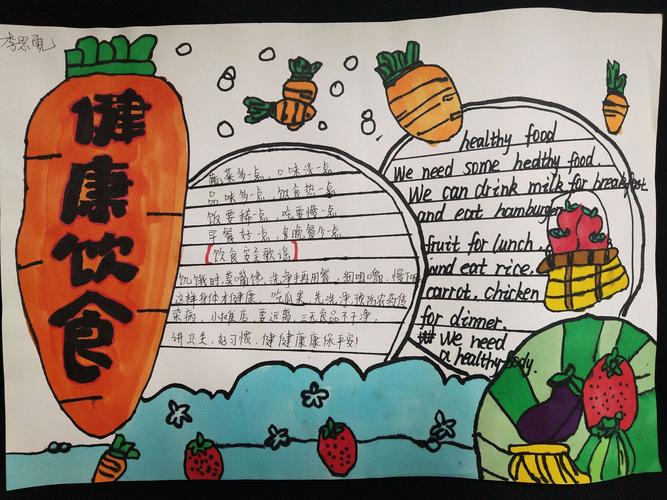 李思甌
健康饮食
蔬菜多一点，口味淡一点
品味多一点，饮食热一点
饭要稀一点，吃要慢一点
早餐好一点，晚餐少一点
饮食安全歌谣
饥饿时，莫嘴馋，洗净手再用餐，细咀嚼，慢下
这样身体才健康，吃瓜果，先洗净，
菜病，小摊店，要远离，三无食品不干净，
讲卫生，好习惯，健健康康保平安！
healthy food
We need some hedthy food.
We can drink milk for breakfast
and eat hamburger
fruit for lunch.
and eat rice.
carrot. chicken
for dinner.
We need
a healthy body.